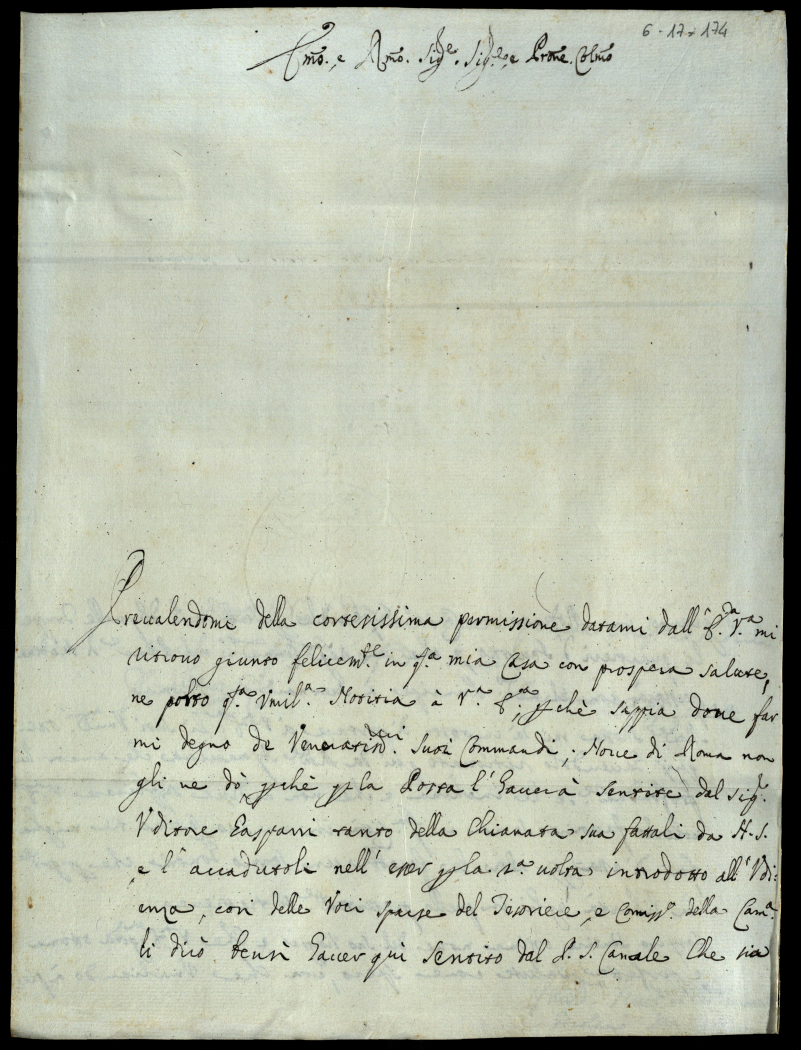 6-17-174
Emo. e Rmo. Sigre. Sigre. e Prone. Colmo
Prevalendomi della cortesissima permissione datami dall' E.da V.a mi
ritrovo giunto felicemte. in qta mia Casa con prospera salute,
ne porto qta. Umila. Notizia à V.a E.a; pchè sappia dove far
mi degno de Veneratisdi. suoi Commandi; Nove di Roma non
gli ne dò, pchè p la Posta l'haverà sentite dal Sigr.
Uditore Gaspari tanto della Chiamata sua fattali da N.S.
e l'accadutoli nell'esser p la 2a. volta introdotto all'Udi:
enza, con delle Voci sparse del Tesoriere, e Comisso. della Cama.
li dirò bensì haver quì sentito dal P.S. Canale Che sia